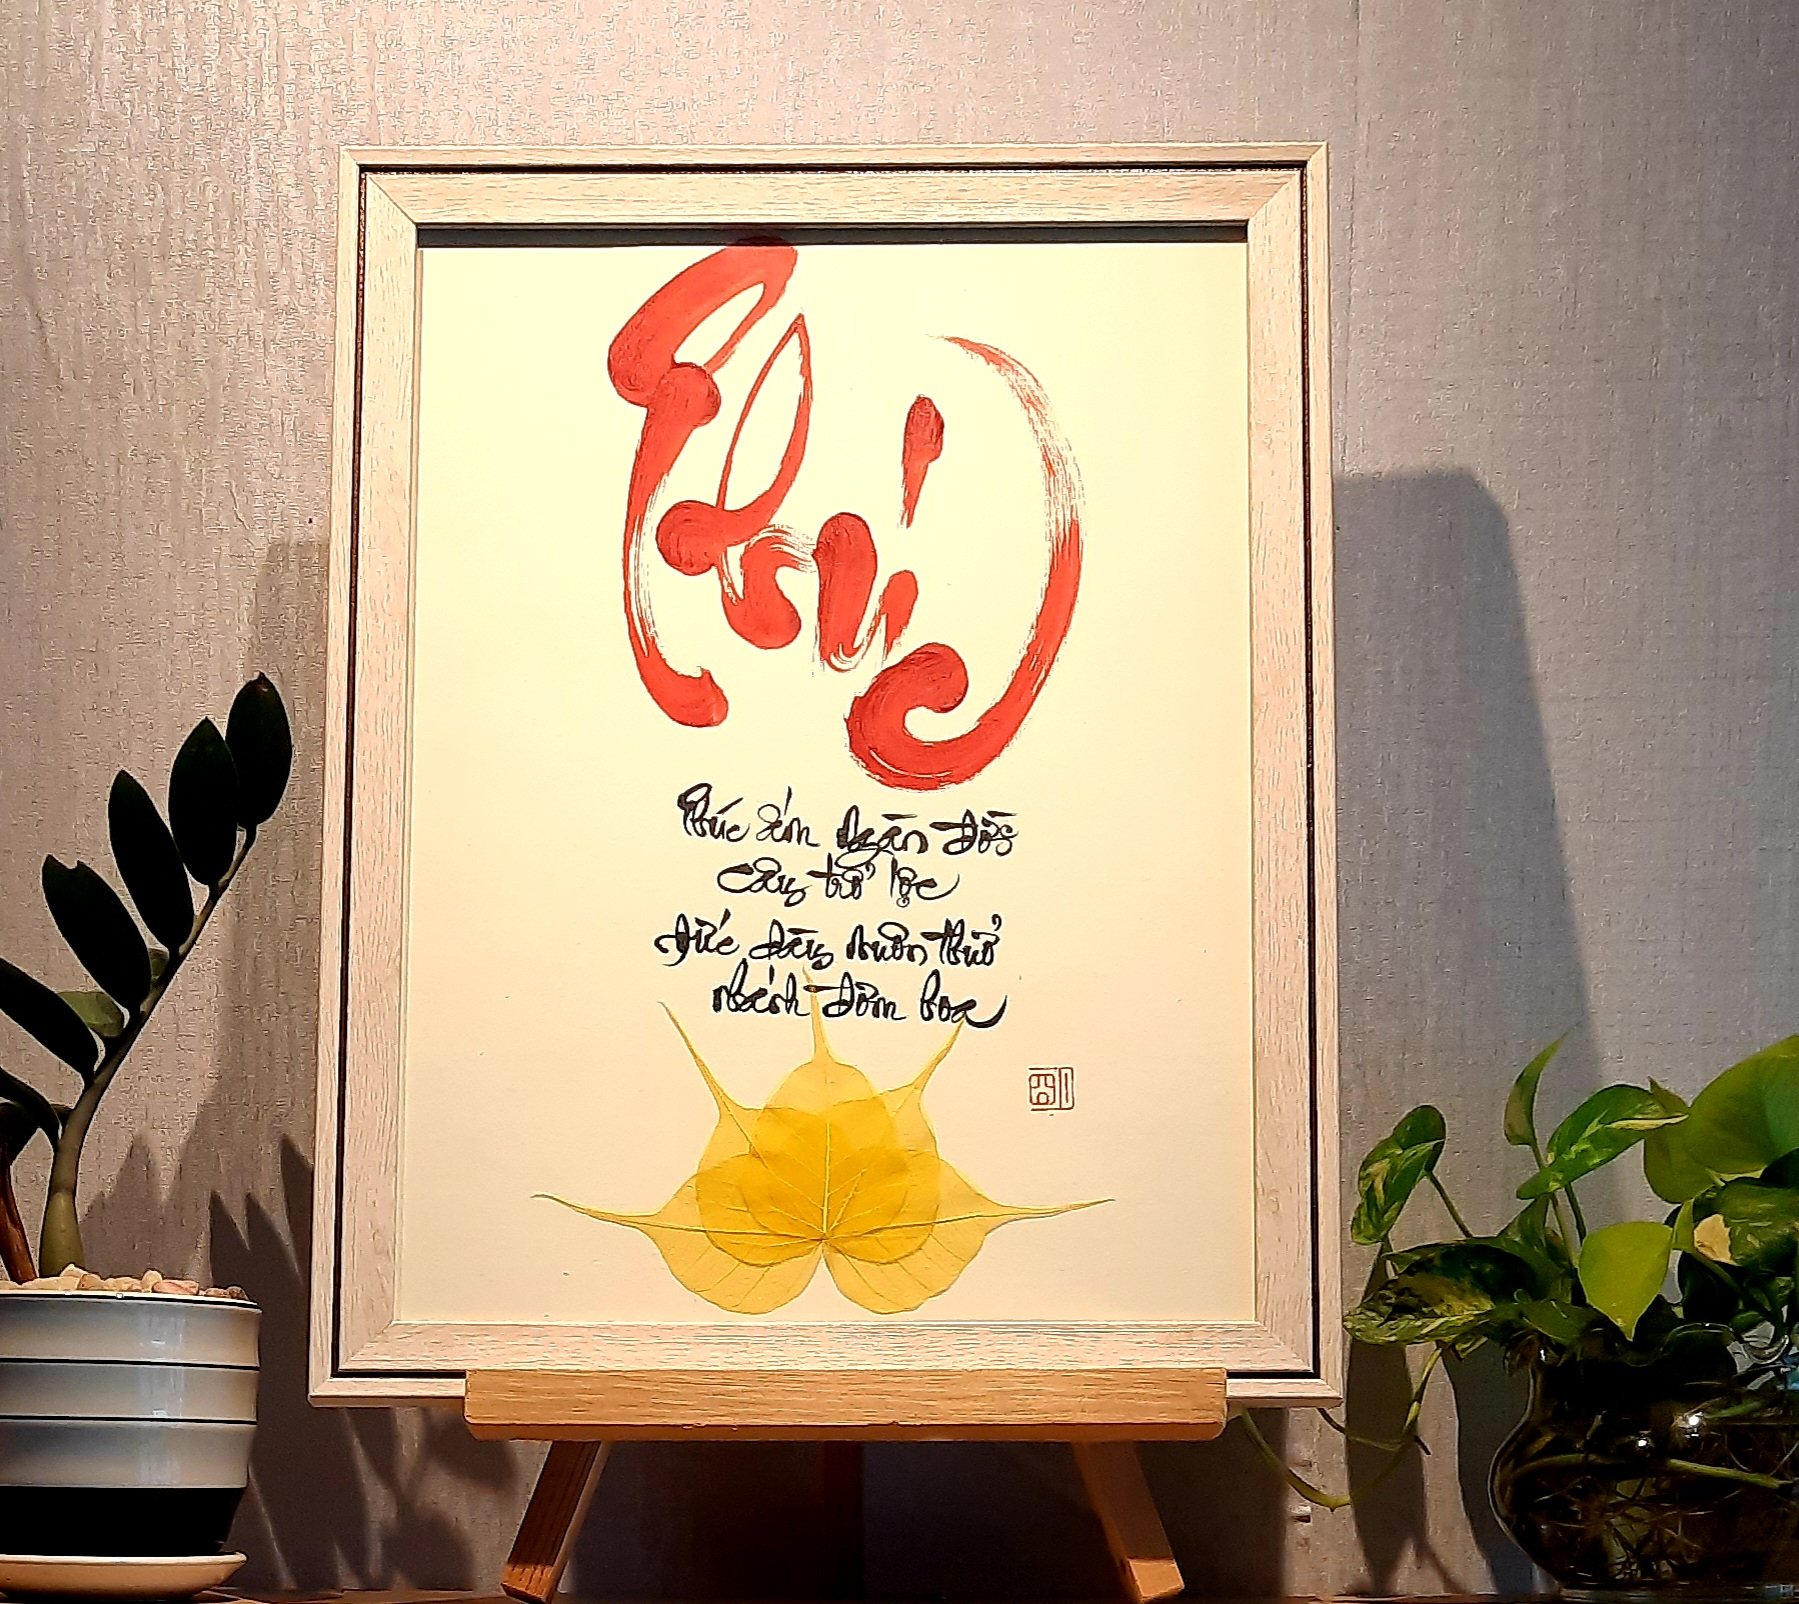 Phúc
Phúc ấm ngàn đời
cây trổ lộc
Đức dày muôn thuở
nhánh đơm hoa